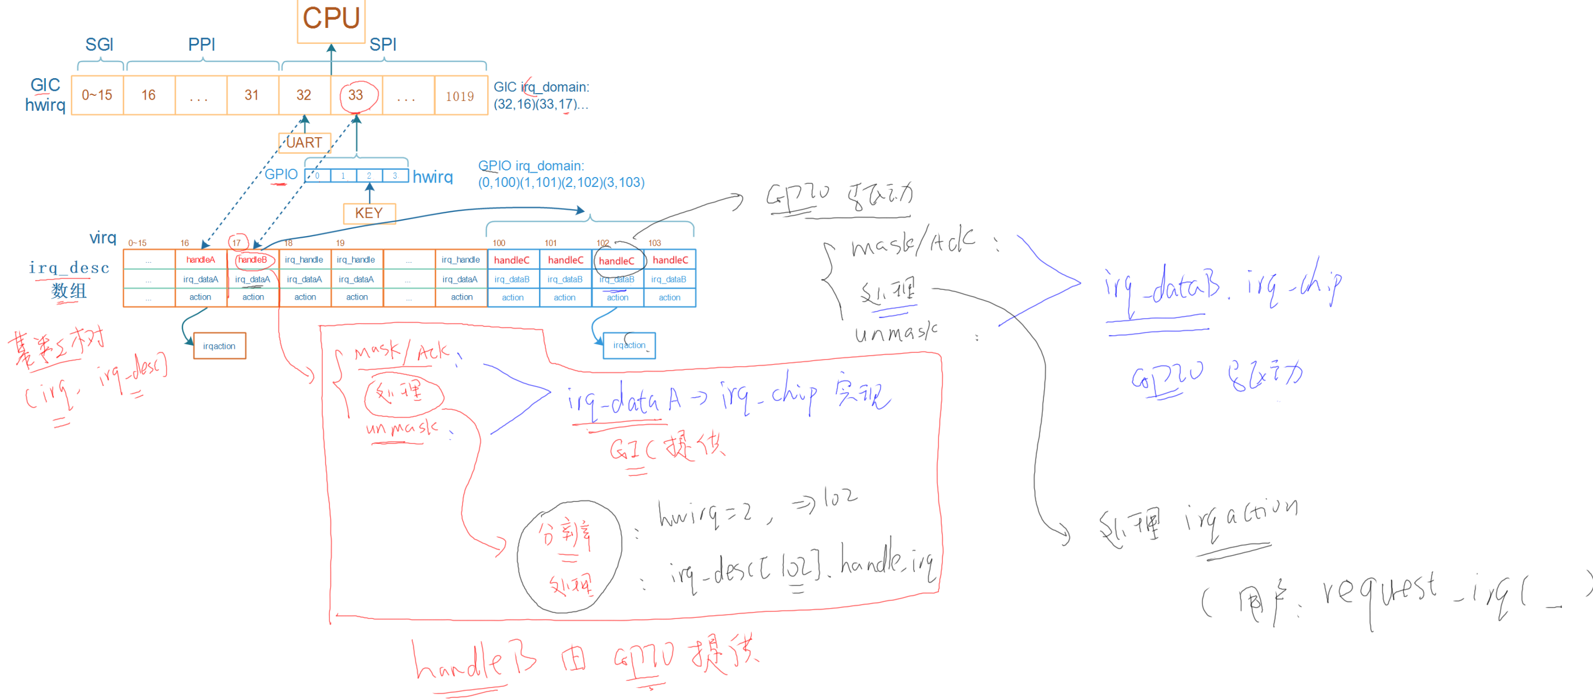 CPU
SGI PPI SPI
GIC hwirq
0~15 16 ... 31 32 33 ... 1019
GIC irq_domain:
(32,16)(33,17)...
UART
GPIO 0 1 2 3 hwirq
GPIO irq_domain:
(0,100)(1,101)(2,102)(3,103)
KEY
virq 0~15 16 17 18 19 100 101 102 103
irq_desc
数组
... handleA handleB irq_handle irq_handle ... irq_handle handleC handleC handleC handleC
... irq_dataA irq_dataA irq_dataA irq_dataA ... irq_dataA irq_dataB irq_dataB irq_dataB irq_dataB
... action action action action ... action action action action action
irqaction
irqaction
(irq, irq_desc)
mask/Ack:
处理
unmask:
irq_dataA→irq_chip 实现
GIC提供
分辨率: hwirq=2, ⇒102
处理: irq_desc[102].handle_irq
handleB 由 GPIO 提供
GPIO 驱动
mask/Ack:
处理
unmask:
irq_dataB.irq_chip
GPIO 驱动
处理 irqaction
(用户: request_irq(_)